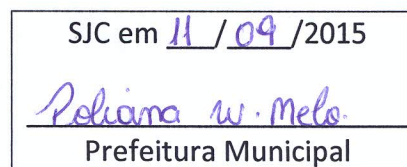 SJC em 11/09/2015
Poliana W. Melo.
Prefeitura Municipal